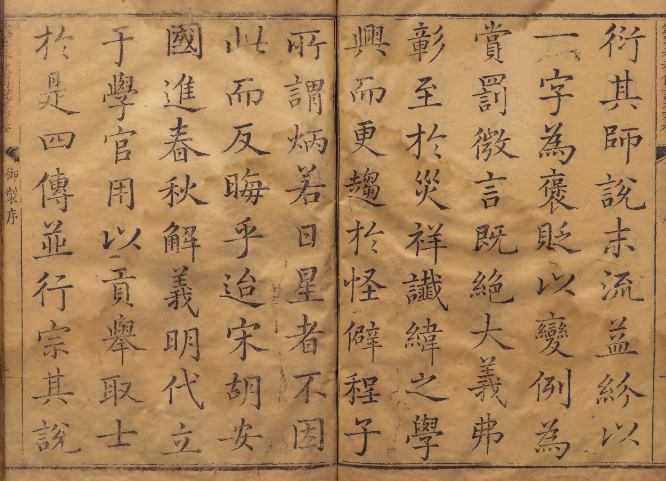 衍其師說末流益紛以
一字為褒貶以變例為
賞罰微言既絕大義弗
彰至於災祥讖緯之學
興而更趨於怪僻程子
所謂炳若日星者不因
此而反晦乎迨宋胡安
國進春秋解義明代立
于學官用以貢舉取士
於是四傳並行宗其說
御製序